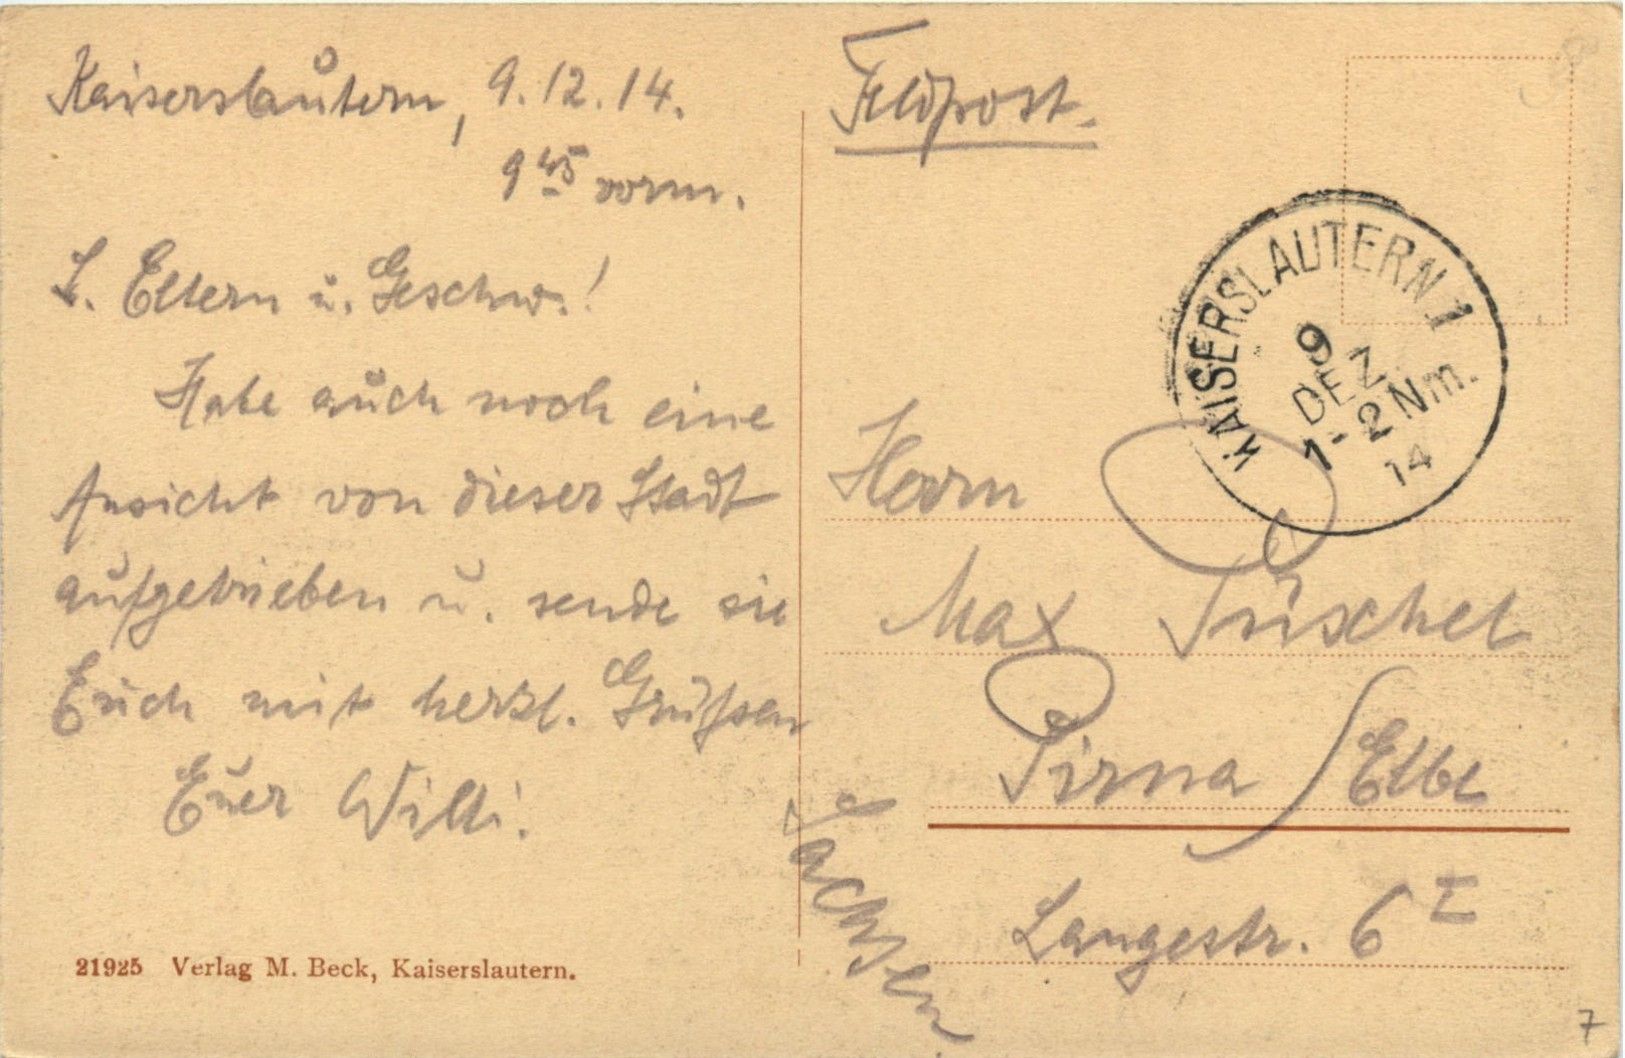 Kaiserslautern, 9.12.14.
9 45 vorm.
L. Eltern u. Geschw.!
Habe auch noch eine
Ansicht von dieser Stadt
aufgetrieben u. sende sie
Euch mit herzl. Grüßen
Euer Willi.
21925 Verlag M. Beck, Kaiserslautern.
Feldpost.
KAISERSLAUTERN 1
9
DEZ.
1-2 Nm.
14
Herrn
Max Püschel
Pirna / Elbe
Langestr. 6 I
Sachsen
7